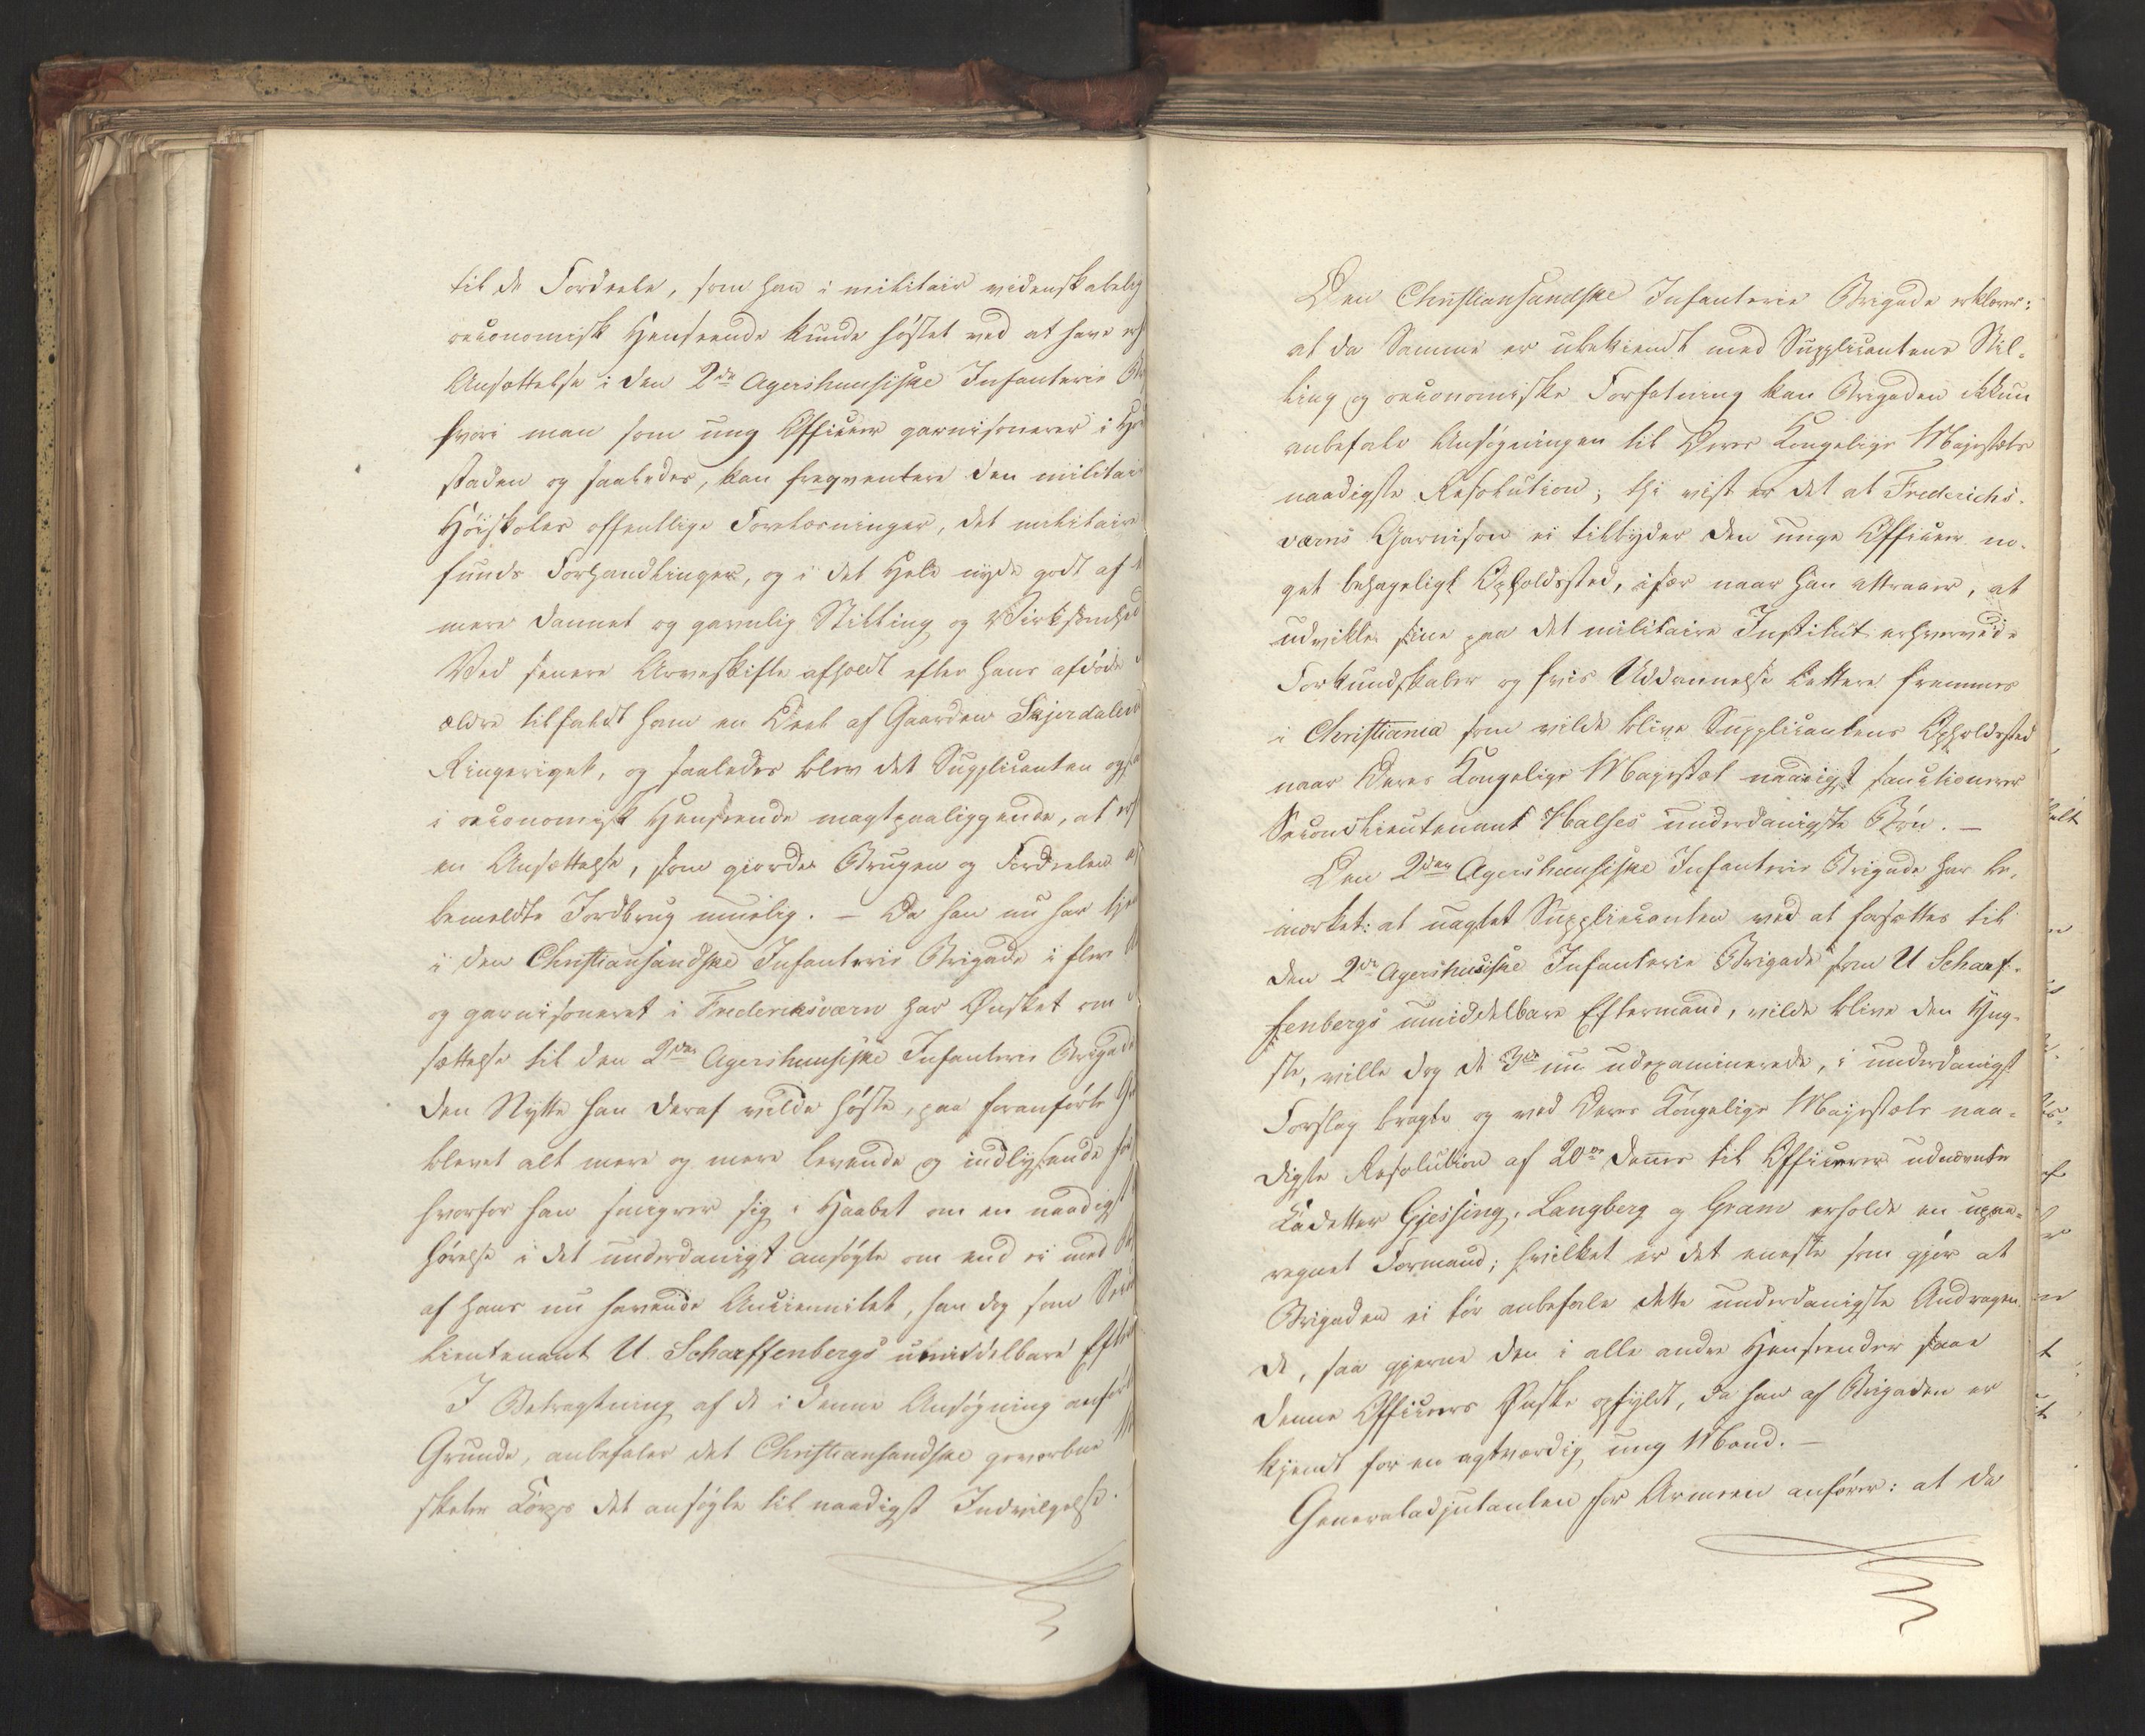 til de Fordeele, som han i militair videnskabelig
oeconomisk Henseende kunde høstet ved at have erh
Ansættelse i den 2de Agershuusiske Infanterie Br
hvori man som ung Officier garnisonerer i Ho
staden og saaledes, kan freqventere den militai
Høiskoles offentlige Forelæsninger, det militaire
funds Forhandlinger, og i det Hele nyde godt af
mere dannet og gavnlig Stilling og Virksomhed
Ved senere Arveskifte afholdt efter hans afdøde
ældre tilfaldt ham en Deel af Gaarden Skjerdalen
Ringeriget, og saaledes blev det Supplicanten ogsaa
i oeconomisk Henseende magtpaaliggende, at erh
en Ansættelse, som giorde Brugen og Fordeelen af
bemeldte Jordbrug muelig. – Da han nu har tjen
i den Christiansandske Infanterie Brigade i flere
og garnisoneret i Frederiksværn har Ønsket om
sættelse til den 2den Agershuusiske Infanterie Brigade
den Nytte han deraf vilde høste, paa foranførte
blevet alt mere og mere levende og indlysende for
hvorfor han smigrer sig i Haabet om en naadigst
hørelse i det underdanigst ansøgte om end ei med
af hans nu havende Anciennitet, han dog som Sec
lieutenant U Scharffenbergs umiddelbare Efter
I Betragtning af de i denne Ansøgning anfør
Grunde, anbefaler det Christiansandske gevorbne
skeler Korps det ansøgte til naadigst Indvilgelse.
Den Christiansandske Infanterie Brigade erklærer:
at da Samme er ubekiendt med Supplicantens Stil-
ling og oeconomiske Forfatning kan Brigaden ikkun
anbefale Ansøgningen til Deres Kongelige Majestæts
naadigste Resolution; thi vist er det at Frederichs-
værns Garnison ei tilbyder den unge Officeer no-
get behageligt Opholdssted, især naar han attraaer, at
udvikle sine paa det militaire Institut erhvervede
Forkundskaber og hvis Uddannelse lettere fremmes
i Christiania som vilde blive Supplicantens Opholdssted
naar Deres Kongelige Majestæt naadigst sanctionerer
Secondlieutenant Halses underdanigste Bøn. –
Den 2den Agershuusiske Infanterie Brigade har be-
mærket: at uagtet Supplicanten ved at forsættes til
den 2den Agershusiske Infanterie Brigade som U Scharf-
fenbergs umiddelbare Eftermand, vilde blive den Yng-
ste, ville dog de 3de nu udexaminerede, i underdanigst
Forslag bragte og ved Deres Kongelige Majestæts naa-
digste Resolution af 20de dennes til Officerer udnævnte
Kadetter Gjessing, Langberg og Gram erholde en upaa-
regnet Formand; hvilket er det eneste som gjør at
Brigaden ei tør anbefale dette underdanigste Andragen-
de, saa gjerne den i alle andre Henseender saae
denne Officeers Ønske opfyldt, da han af Brigaden er
kjendt for en agtværdig ung Mand. –
Generaladjutanten for Armeen anfører: at da